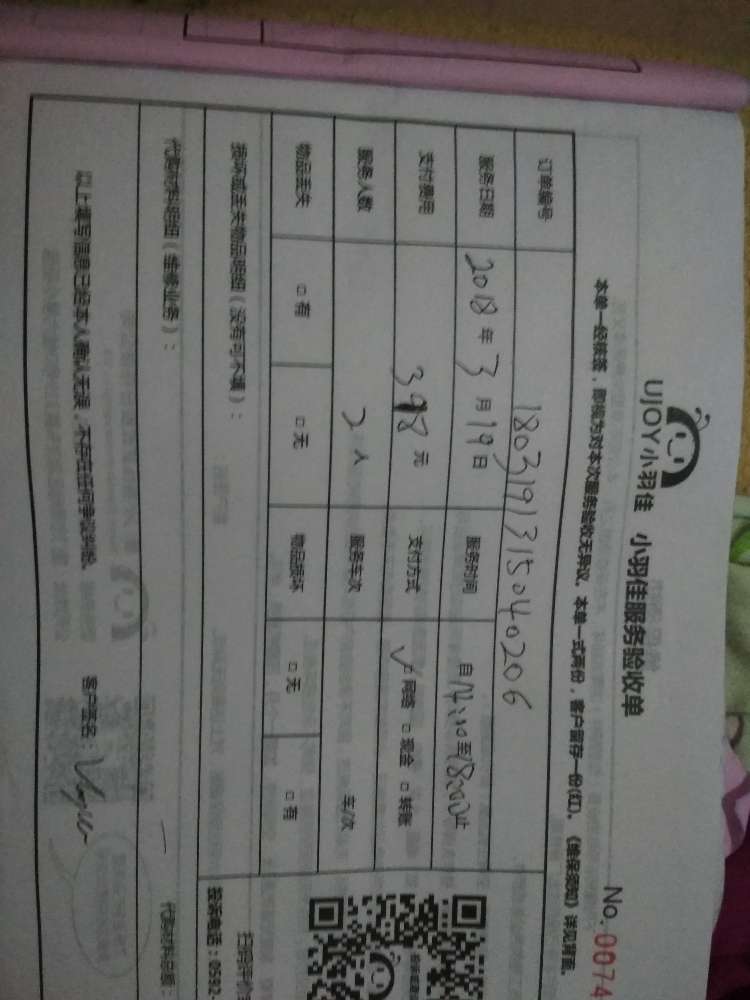 UJOY小羽佳 小羽佳服务验收单 No.0074
本单一经核签，即视为对本次服务验收无异议。本单一式两份，客户留存一份(红)。《维保须知》详见背面。
订单编号 180319131504 0206
服务日期 2018年3月19日 服务时间 自14:00至18:00止
支付费用 398元 支付方式 ✓网络 □现金 □转账
服务人数 2人 服务车次 车/次
物品丢失 □有 □无 物品损坏 □无 □有
损坏或丢失物品明细（没有可不填）：
代购材料明细（维修业务）：
代购材料总额：
以上填写信息已经本人确认无误，不存在任何争议纠纷。 客户签名：
扫码评价
投诉电话：0592-